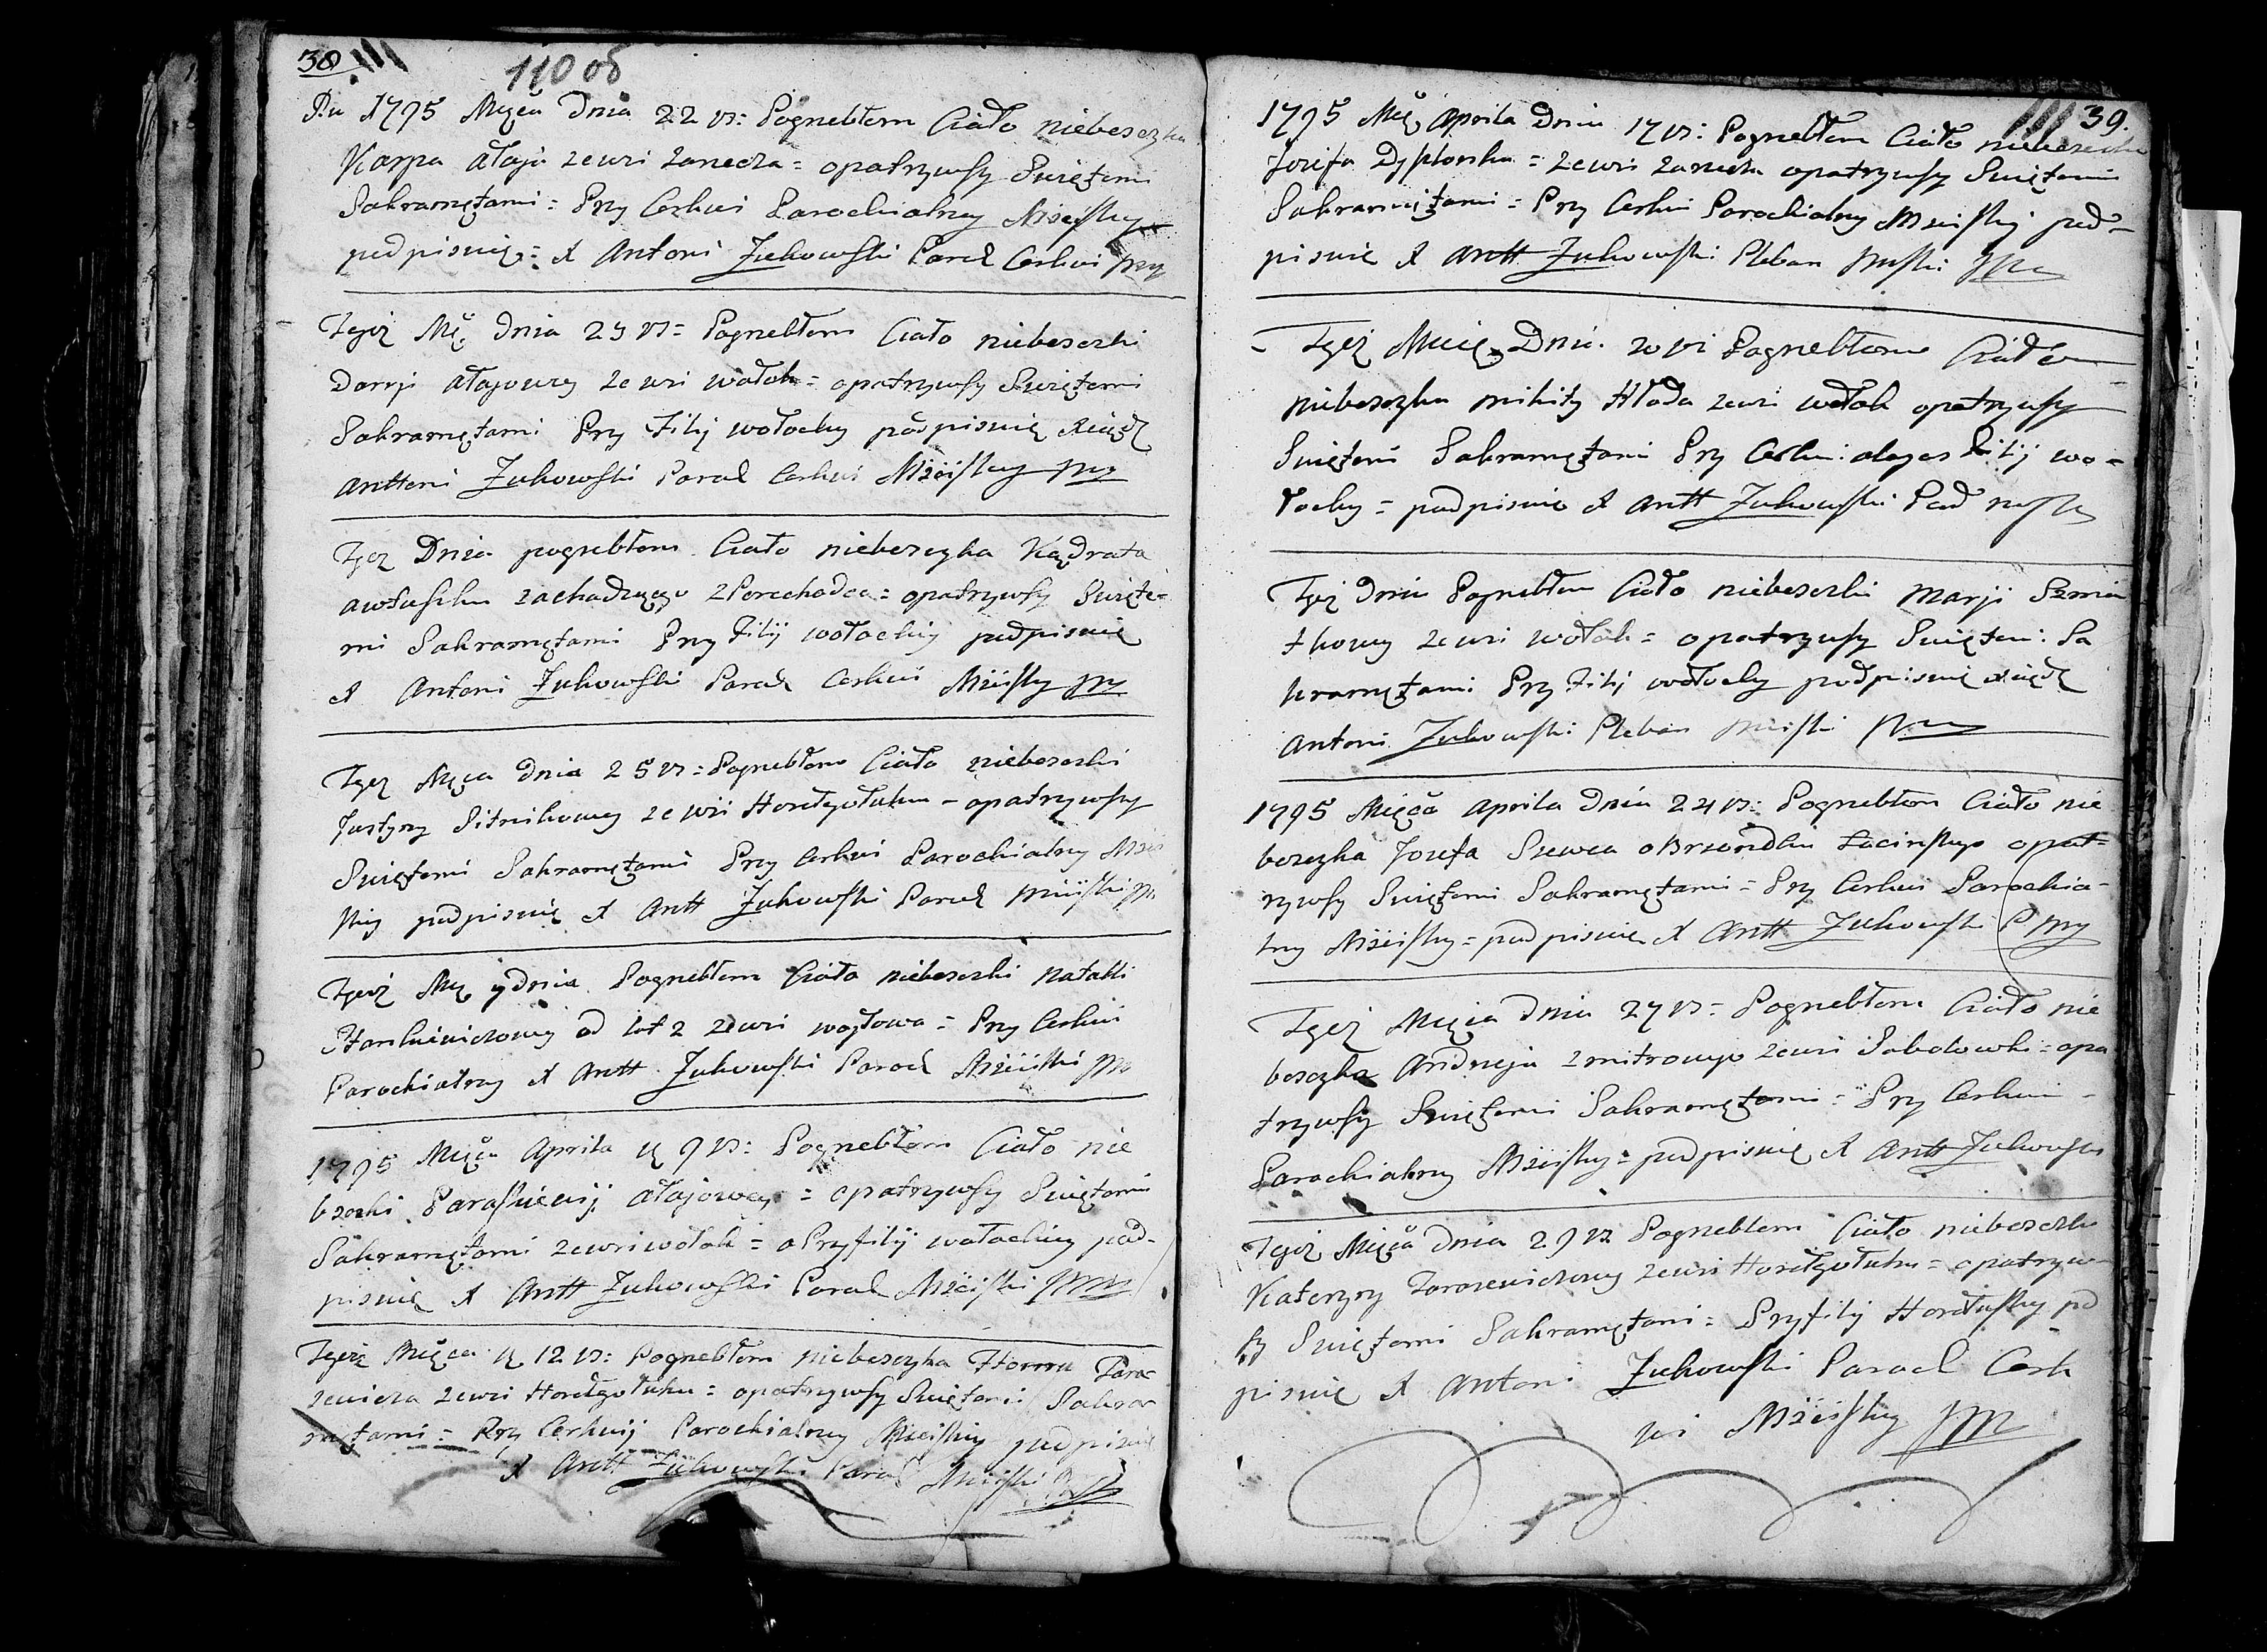 38
110 об
Ru 1795 Mcȩca Dnia 22 vs: Pogrebłem Ciało niebosczka
Karpa Ałaja ze wsi Zarecza = opatrzywszy Swiętemi
Sakramętami = Przy Cerkwi Parochialney Mszeiskiey
podpisuię = X Antoni Żukowski Paroch Cerkwi
Tegoż Mcȩ. Dnia 23 vs = Pogrebłem Ciało nieboszczki
Daryi Ałajowey ze wsi Wołok = opatrzywszy Swiętemi
Sakramętami Przy Filij wołockiey podpisuię Xiądz
Anttoni Żukowski Paroch Cerkwi Mszeiskiey
Tegoż Dnia pogrebłem Ciało niebosczyka Kądrata
zachadzącego = opatrzywszy Swięte-
mi Sakramętami Przy Filij wołockiey podpisuię
X Antoni Żukowski Paroch Cerkwi Mszeiskiey
Tegoż Mcȩca Dnia 25 vs = Pogrebłem Ciało nieboszczki
Justyny Sitnikowey ze wsi Horełgołuku = opatrzywszy
Swiętemi Sakramętami Przy Cerkwi Parochialney Mszei
skiey podpisuię X Antt Żukowski Paroch Mszeiski
Tegoż Mcȩ y dnia Pogrebłem Ciało nieboszczki Natalli
od lat 2 ze wsi woytowa = Przy Cerkwi
Parochialney X Antt Żukowski Paroch Mszeiski
1795 Mcȩca Aprila 9 vs: Pogrebłem Ciało nie
bszczki Paraskiewij Ałajowey = opatrzywszy Swiętemi
Sakramętami ze wsi wołok = Przy filij wołockiey pod-
pisuię X Antt Żukowski Paroch Mszeiski
Tegoż Mcȩca 12 vs: Pogrebłem niebosczyka Tara-
zewicza ze wsi Horełgołuku = opatrzywszy Swiętemi Sakra
mętami = Przy Cerkwij Parochialney Mszeiskiey podpisuię
X Antt Żukowski Paroch Mszeiski
39.
1795 Mcȩ, Aprila Dnia 17 vs: Pogrebłem Ciało niebosczika
Jozefa = ze wsi Zarecza opatrzywszy Swiętemi
Sakramiętami = Przy Cerkwi Parochialney Mszeiskiej pod-
pisuię X Antt Żukowski Pleban Mszeiski
Tegoż Mcȩ, Dnia 20 vs Pogrebłem Ciało
niebosczyka Mikity Hłoda ze wsi wołok opatrzywszy
Swiętemi Sakramętami Przy Cerkwi Filij wo-
łockiey = podpisuię X Antt Żukowski
Tegoż Dnia Pogrebłem Ciało nieboszczki Maryi Szmia
tkowey ze wsi wołok = opatrzywszy Swiętemi Sa
kramętami Przy Filij wołockiey podpisuię Xiądz
Antoni Żukowski Pleban Mszeiski
1795 Mcȩca Aprila Dnia 24 vs: Pogrebłem Ciało nie
bosczyka Jozefa Szewca obrzondku Łacinskiego opat-
rzywszy Swiętemi Sakramętami = Przy Cerkwi Parochia-
lney Mszeiskiey = podpisuię X Antt Żukowski P
Tegoż Mcȩca Dnia 27 vs = Pogrebłem Ciało nie
bosczyka Andrzeja ze wsi = opa
trzywszy Swiętemi Sakramętami = Przy Cerkwi
Parochialney Mszeiskiey = podpisuię X Antt Żukowski
Tegoż Mcȩca Dnia 29 vs Pogrebłem Ciało nieboszczki
Katerzyny Tarasewiczowey ze wsi Horełgołuku = opatrzyw-
szy Swiętemi Sakramętami = Przy filij pod
pisuię X Antoni Żukowski Paroch Cerk
wi Mszeiskiey